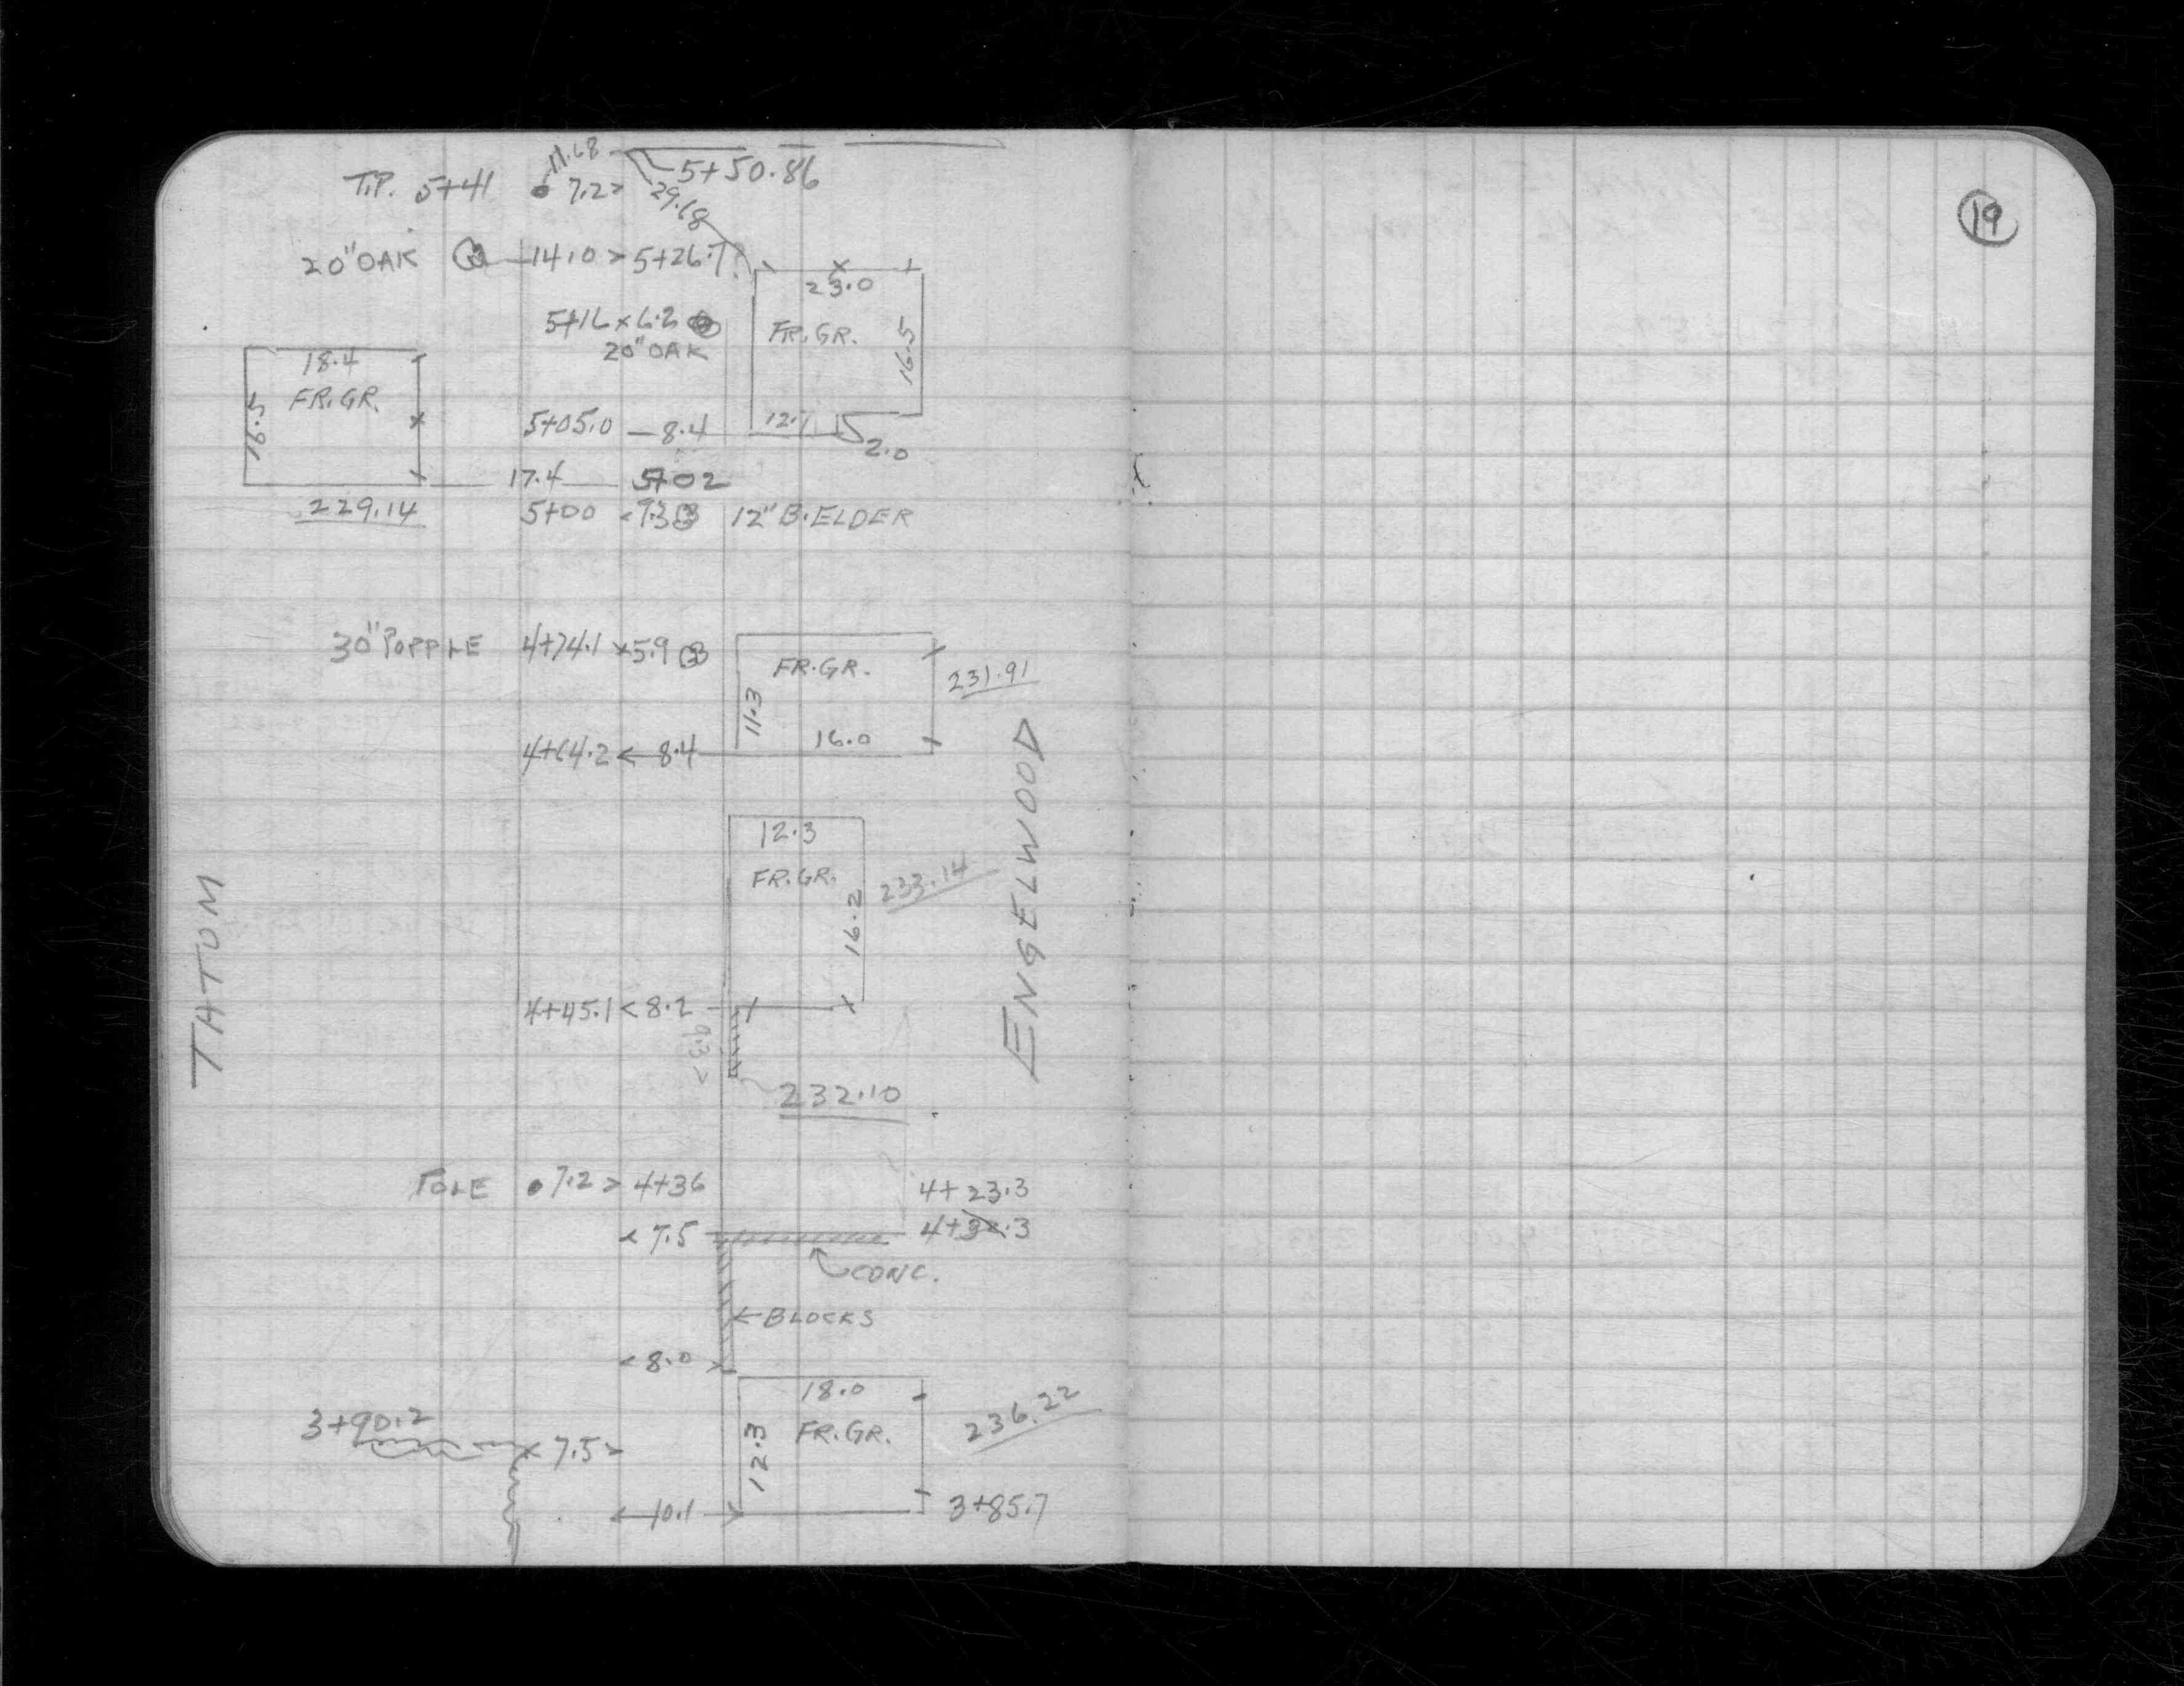 11.68
5+50.86
T.P. 5+41 7.2>
29.68
19
20" OAK 14.0 > 5+26.7
23.0
5+16 x 6.2
20" OAK
FR.GR.
16.5
18.4
FR.GR.
16.5
5+05.0 8.4
12.7
2.0
17.4 5+02
229.14
5+00 < 7.3 12" B.ELDER
30" POPPLE 4+74.1 x 5.9
FR.GR.
231.91
11.3
16.0
4+64.2 < 8.4
ENGELWOOD
12.3
FR.GR.
233.14
16.2
THTOM
4+45.1 < 8.2
9.3 >
232.10
POLE 7.2 > 4+36
4+23.3
< 7.5
4+32.3
CONC.
BLOCKS
< 8.0 >
18.0
FR.GR.
236.22
12.3
3+90.2
x 7.5 >
10.1
3+85.7